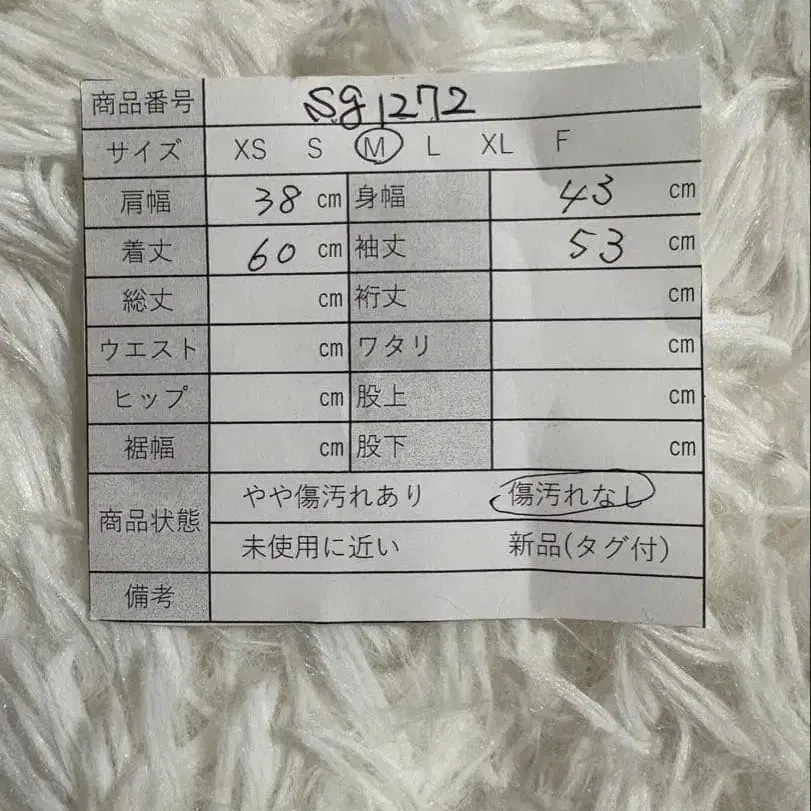 商品番号 sg1272
サイズ XS S M L XL F
肩幅 38 cm 身幅 43 cm
着丈 60 cm 袖丈 53 cm
総丈 cm 裄丈 cm
ウエスト cm ワタリ cm
ヒップ cm 股上 cm
裾幅 cm 股下 cm
商品状態 やや傷汚れあり 傷汚れなし
未使用に近い 新品(タグ付)
備考